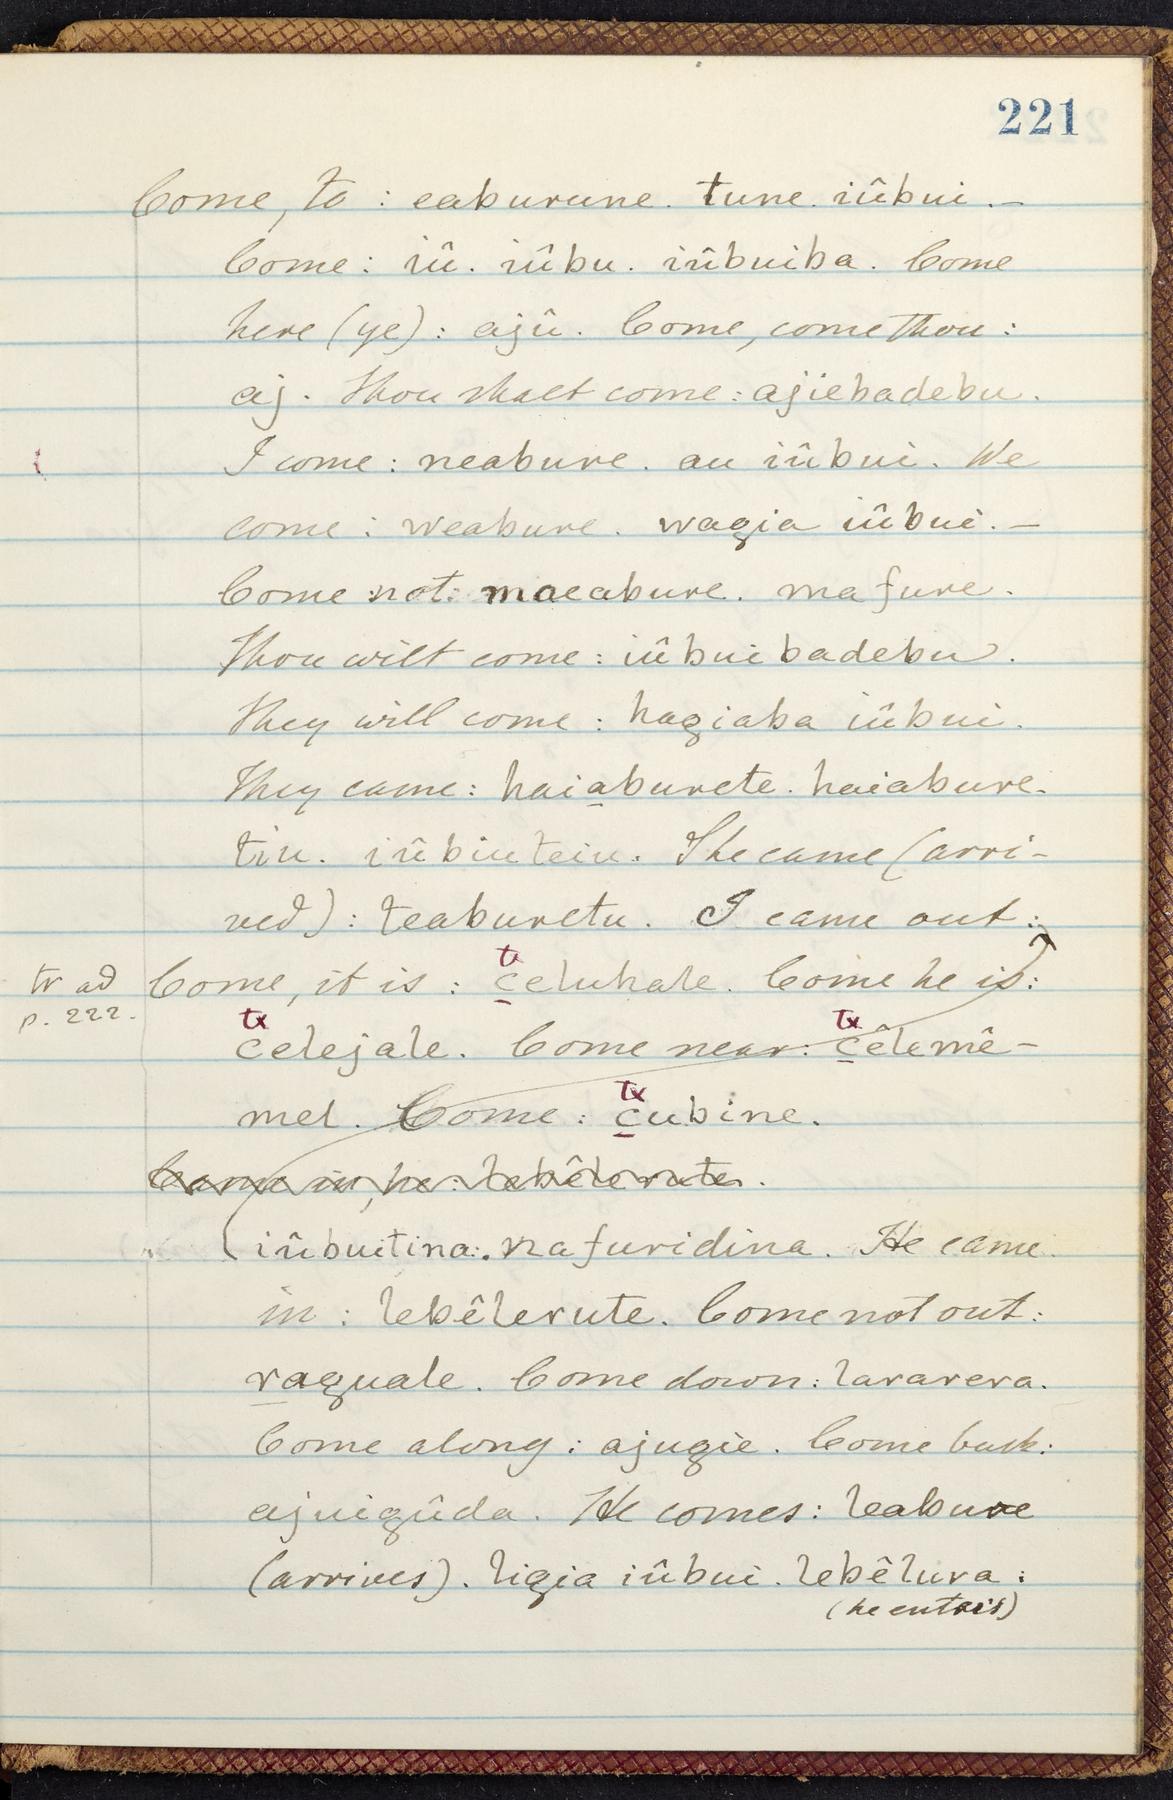 221
Come, to : eaburune. tune. iûbui. —
Come : iû. iûbu. iûbuiba. Come
here (ye) : ajû. Come, come thou :
aj. Thou shalt come : ajiebadebu.
I come : neabure. au iûbui. We
come : weabure. wagia iûbui. —
Come not : maeabure. mafure.
Thou wilt come : iûbuibadebu.
They will come : hagiaba iûbui.
They came : haiaburete. haiabure-
tiu. iûbiuteiu. She came (arri-
ved) : teaburetu. I came out :
tr ad p. 222. Come, it is : celuhale. Come he is :
tx tx tx
celejale. Come near : cêlemê-
tx
mel. Come : cubine.
Came in, he : lebêlerute.
iûbuitina. nafuridina. He came
in : lebêlerute. Come not out :
raguale. Come down : lararera.
Come along : ajugie. Come back :
ajuigûda. He comes : leabure
(arrives). ligia iûbui. lebêlura :
(he enters)